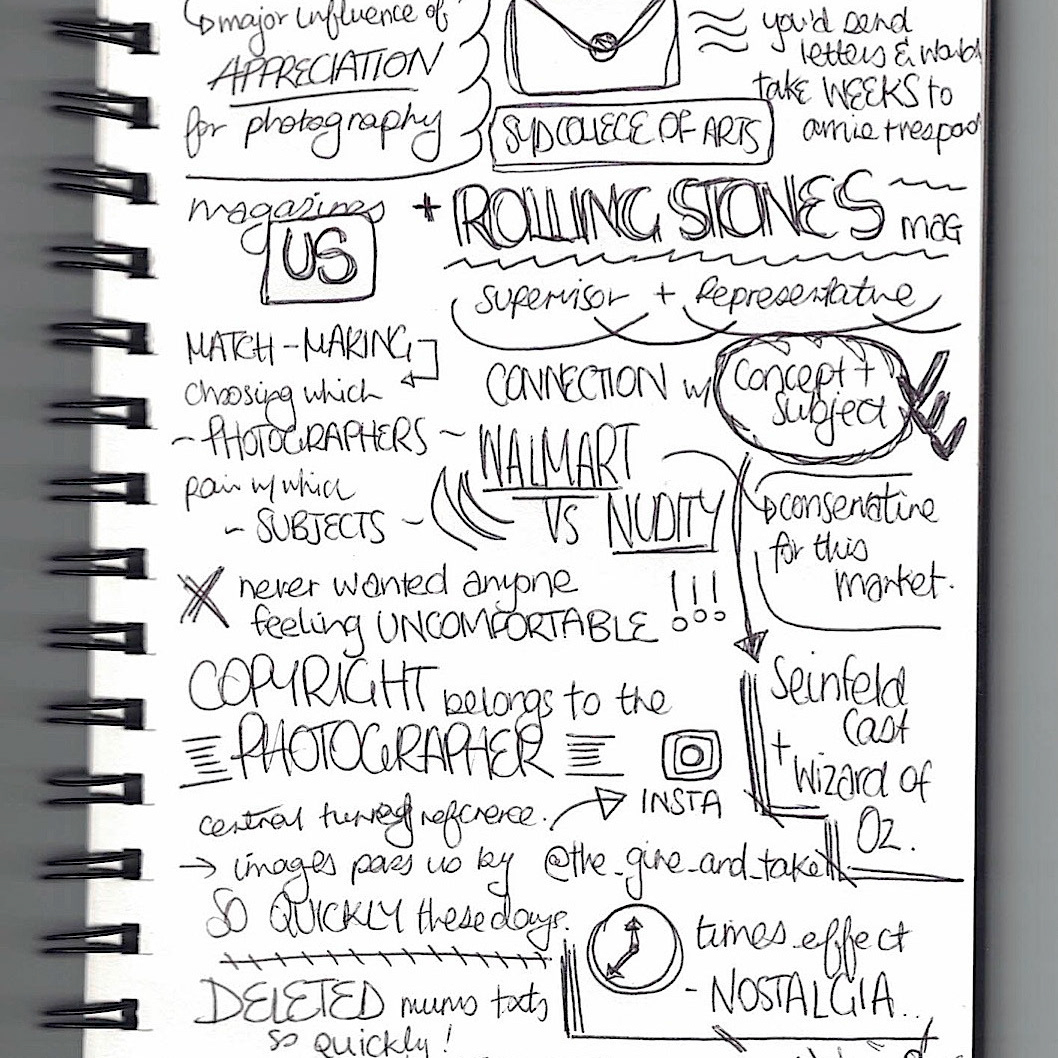 major influence of
APPRECIATION
for photography
you'd send
letters & would
take WEEKS to
arrive + respond
SYD COLLEGE OF ARTS
magazines + ROLLING STONES MAG
US
supervisor + Representative
MATCH-MAKING
choosing which
- PHOTOGRAPHERS -
pair w/ which
- SUBJECTS -
CONNECTION w/ concept +
subject
WALMART
VS NUDITY
conservative
for this
market.
X never wanted anyone
feeling UNCOMFORTABLE !!!
COPYRIGHT belongs to the
PHOTOGRAPHER
Seinfeld
Cast
+ Wizard of
OZ.
central reference.
INSTA
@the_give_and_take
→ images pass us by
SO QUICKLY these days.
DELETED mums texts
so quickly!
times effect
- NOSTALGIA...